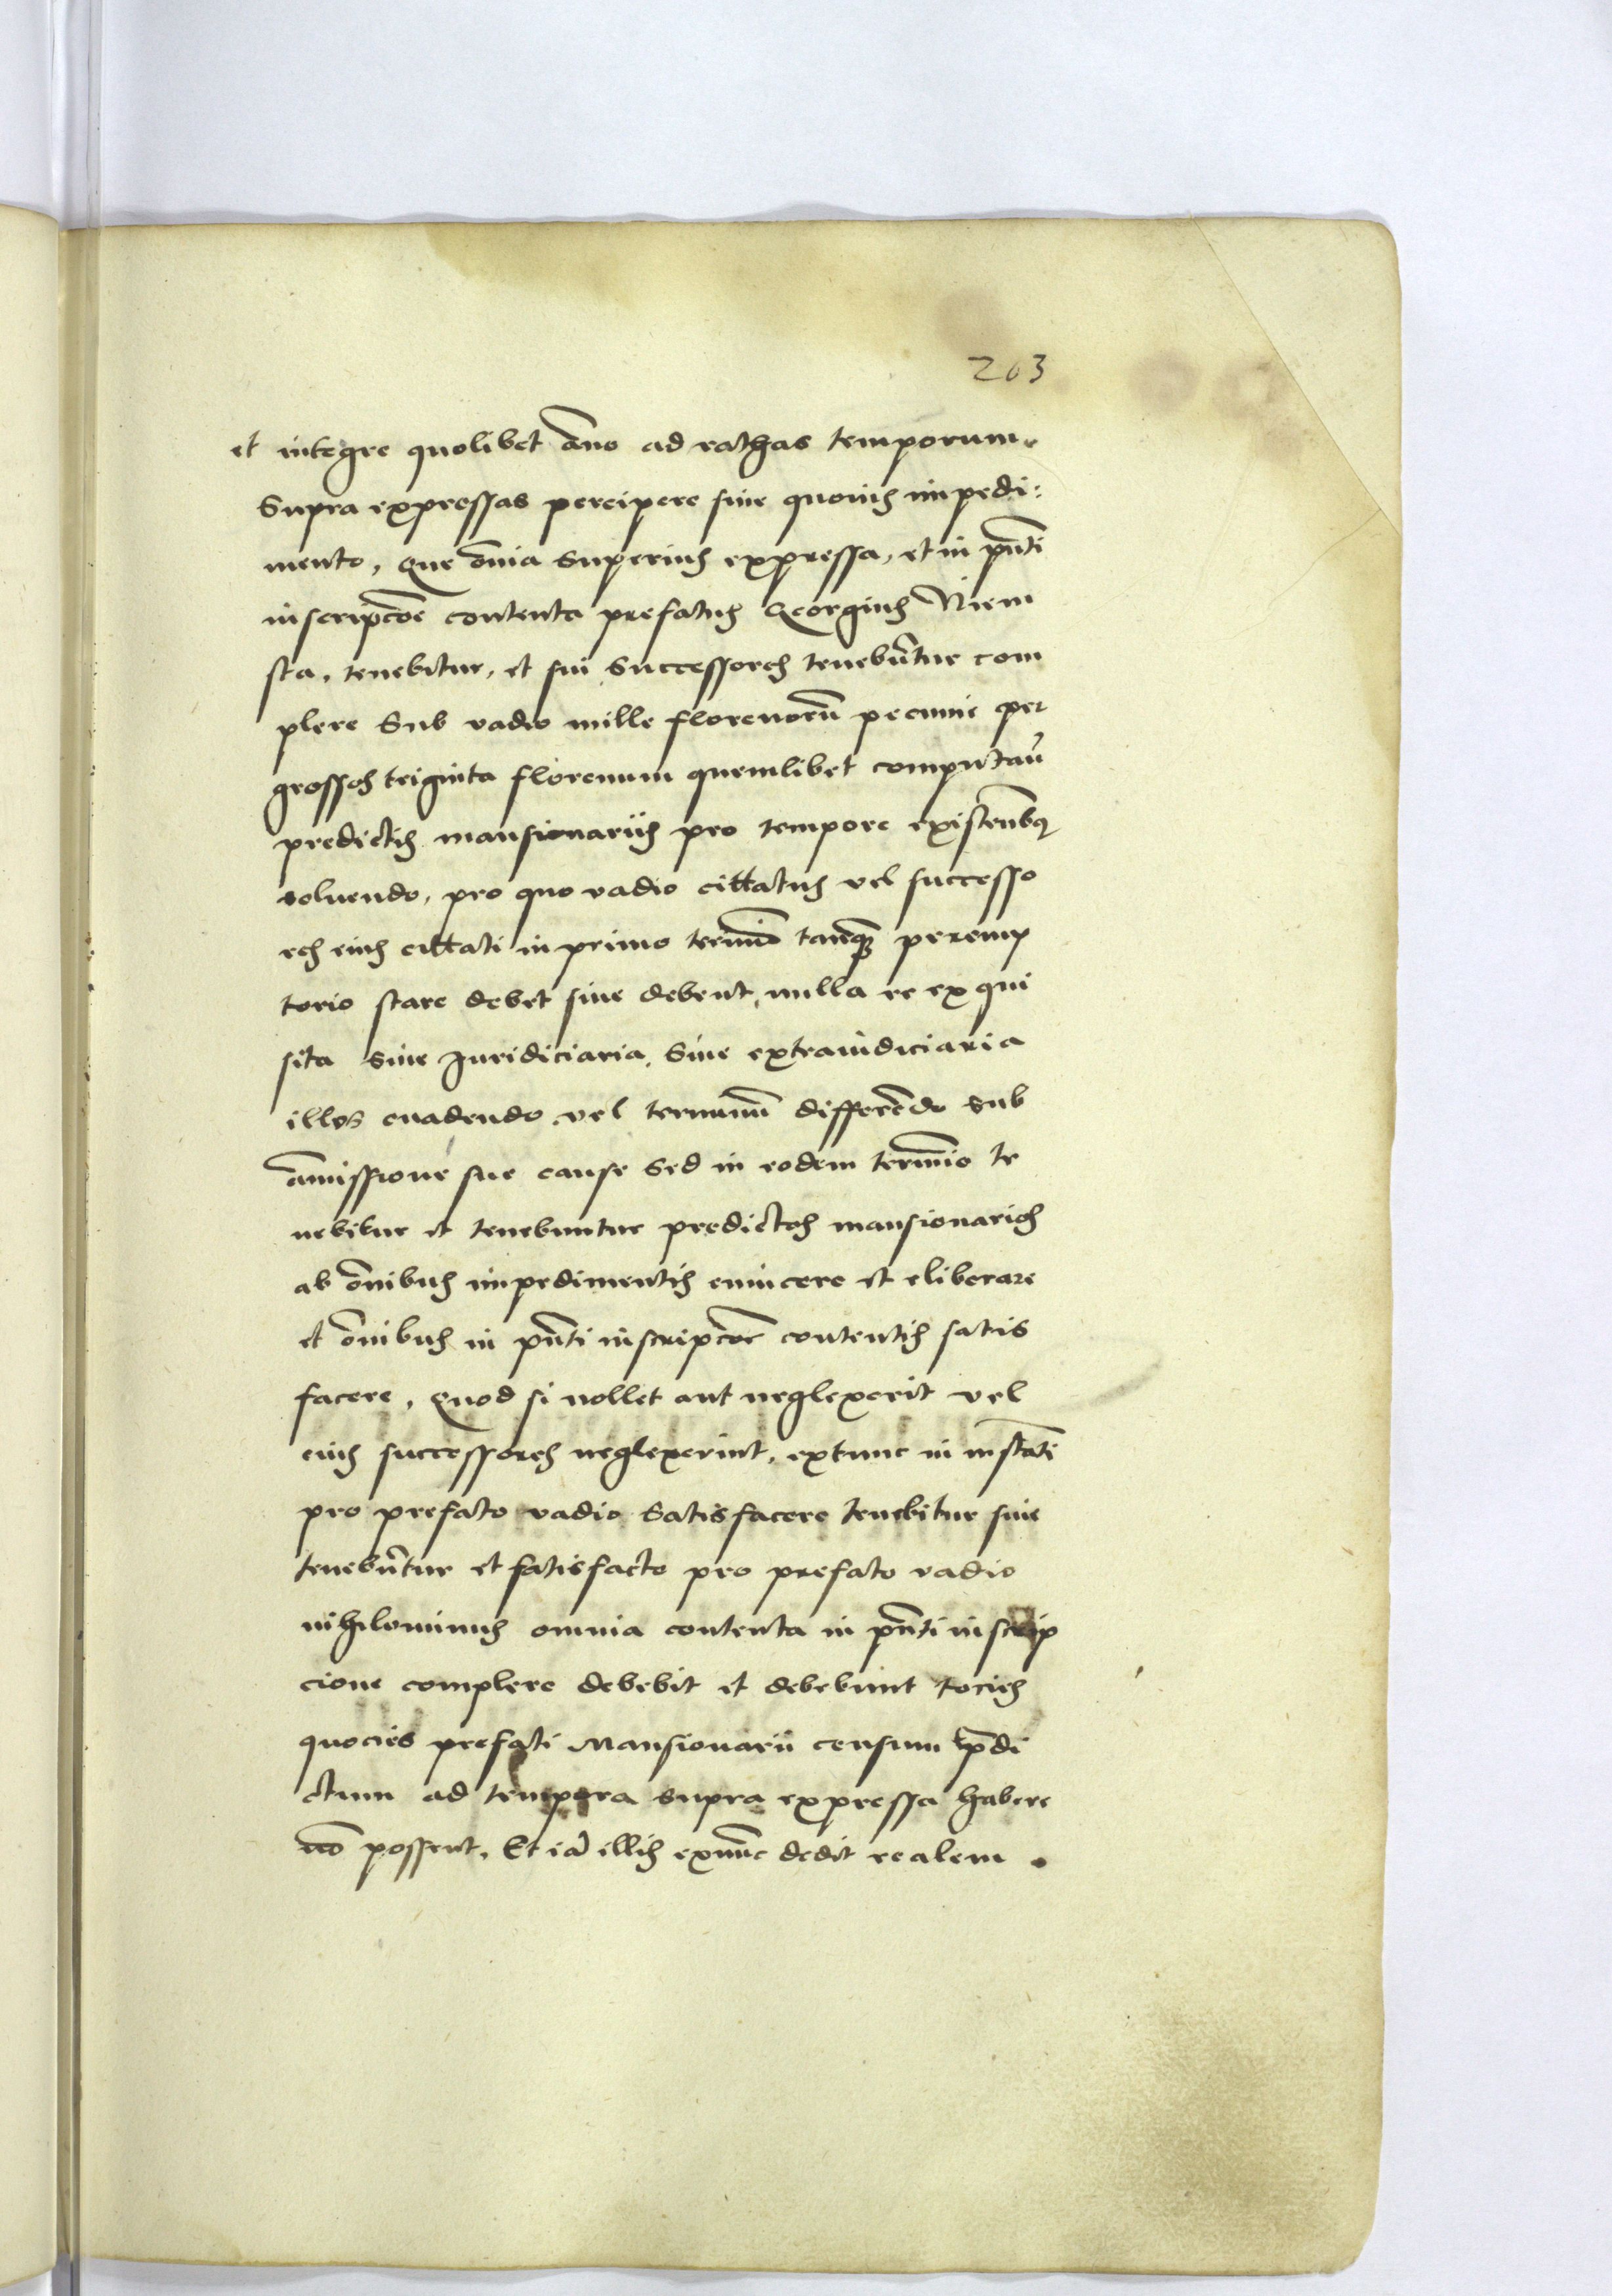 203
et integre quolibet a͞no ad rathas temporum
supra expressas percipere sine quouis impedi:
mento, Que o͞mia superius expressa, et in p͞nti
inscripc͞oe contenta prefatus Georgius Niem
sta, tenebitur, et sui successores tenebu͞tur com
plere Sub vadio mille florenoru͞ pecunie per
grossos triginta florenum quemlibet computa͞n
predictis mansionariis pro tempore existen͞bq
soluendo, pro quo vadio cittatus vel successo
res eius cittati in primo termi͞o tanq͞ peremp
torio stare debet siue debent, nulla re exqui
sita siue Juridiciaria, Siue extraiudiciaria
illos euadendo vel terminu͞ differe͞do sub
a͞missione sue cause Sed in eodem termi͞o te
nebitur et tenebuntur predictos mansionarios
ab o͞nibus impedimentis euincere et eliberare
et o͞nibus in p͞nti inscripc͞oe contentis satis
facere, Quod si nollet aut neglexerit vel
eius successores neglexerint, extunc in insta͞ti
pro prefato vadio Satisfacere tenebitur siue
tenebu͞tur et satisfacto pro prefato vadio
nihilominus omnia contenta in p͞nti inscrip
cione complere debebit et debebunt tocies
quocies prefati Mansionarii censum p͞di
ctum ad tempora supra expressa habere
no͞ possent, Et ia͞ illis exnu͞c dedit realem